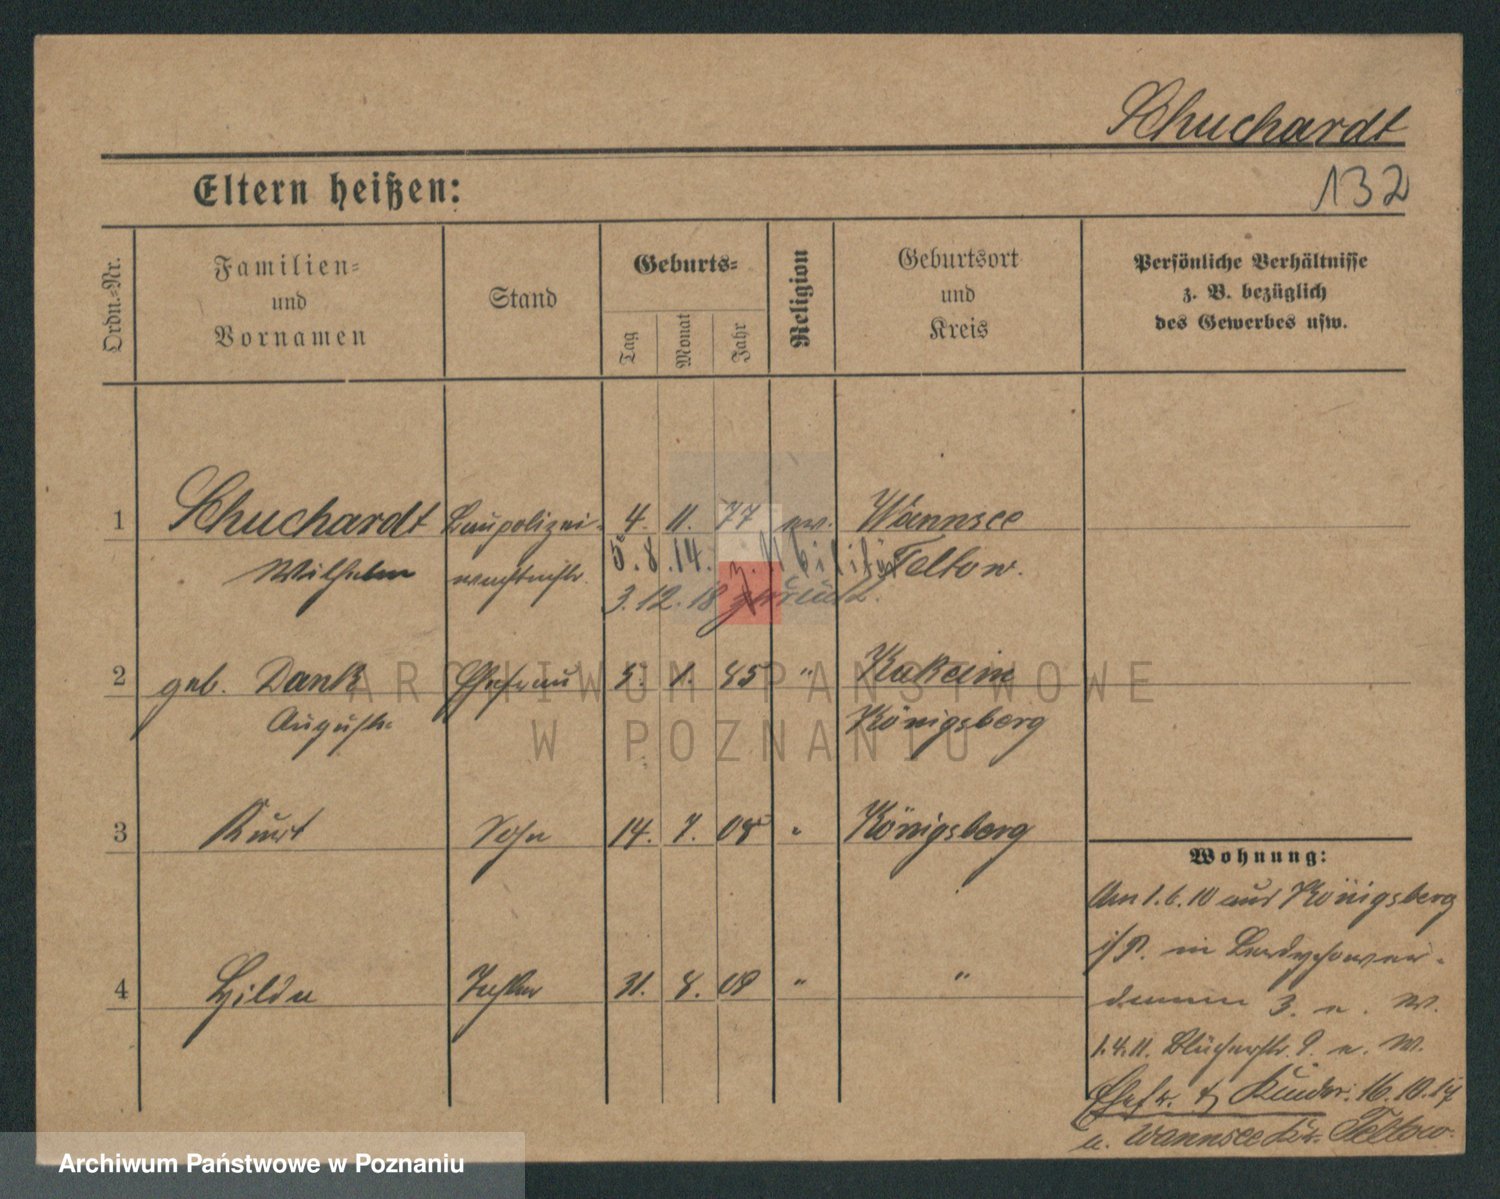 Schuchardt
Eltern heißen:
132
Ordn.-Nr.
Familien-
und
Vornamen
Stand
Geburts-
Tag
Monat
Jahr
Religion
Geburtsort
und
Kreis
Persönliche Verhältnisse
z. B. bezüglich
des Gewerbes usw.
1 Schuchardt Baupolizei- 4. 11. 77 ev. Wannsee
Wilhelm wachtmstr. Teltow.
5.8.14. z. Militär
3.12.18 zurück.
2 geb. Dank Ehefrau 5. 1. 85 " Kukein
Auguste Königsberg
3 Kurt Sohn 14. 7. 08 " Königsberg
4 Hilda Tochter 31. 8. 09 " "
Wohnung:
Am 1.6.10 aus Königsberg
i/P. in
damm 3. n. W.
1.4.11. Blücherstr. 9. n. W.
Ehefr. & Kinder: 16.10.17
n. Wannsee Kr. Teltow.
ARCHIWUM PAŃSTWOWE
W POZNANIU
Archiwum Państwowe w Poznaniu